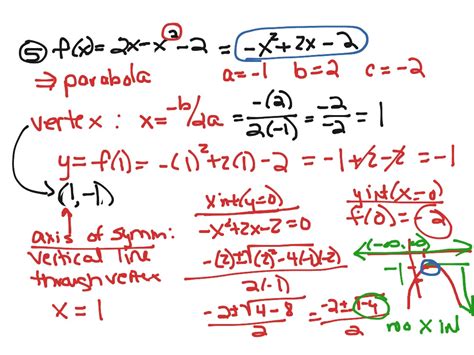 ⑤ f(x) = 2x-x²-2 = -x²+2x-2
⇒ parabola a=-1 b=2 c=-2
vertex : x= -b/2a = -(2)/2(-1) = -2/-2 = 1
y = f(1) = -(1)²+2(1)-2 = -1+2-2 = -1
(1,-1)
axis of symm:
vertical line
through vertex
x = 1
x int (y=0)
-x²+2x-2=0
-(2)±√(2)²-4(-1)(-2)
2(-1)
-2±√4-8 / 2 = -2±√-4 / 2
y int (x=0)
f(0) = -2
(-∞,∞)
-1
no x in